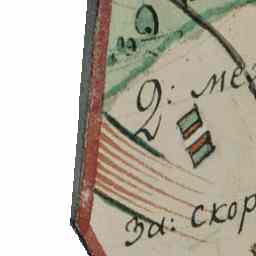 2: мез
за: скор